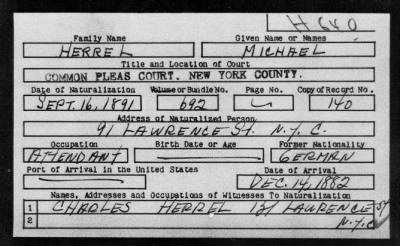 H 640
Family Name Given Name or Names
HERREL MICHAEL
Title and Location of Court
COMMON PLEAS COURT. NEW YORK COUNTY.
Date of Naturalization Volume or Bundle No. Page No. Copy of Record No.
SEPT. 16, 1891 692 140
Address of Naturalized Person
91 LAWRENCE ST. N.Y.C.
Occupation Birth Date or Age Former Nationality
ATTENDANT GERMAN
Port of Arrival in the United States Date of Arrival
DEC. 14, 1882
Names, Addresses and Occupations of Witnesses To Naturalization
1 CHARLES HERREL 121 LAWRENCE ST
2 N.Y.C